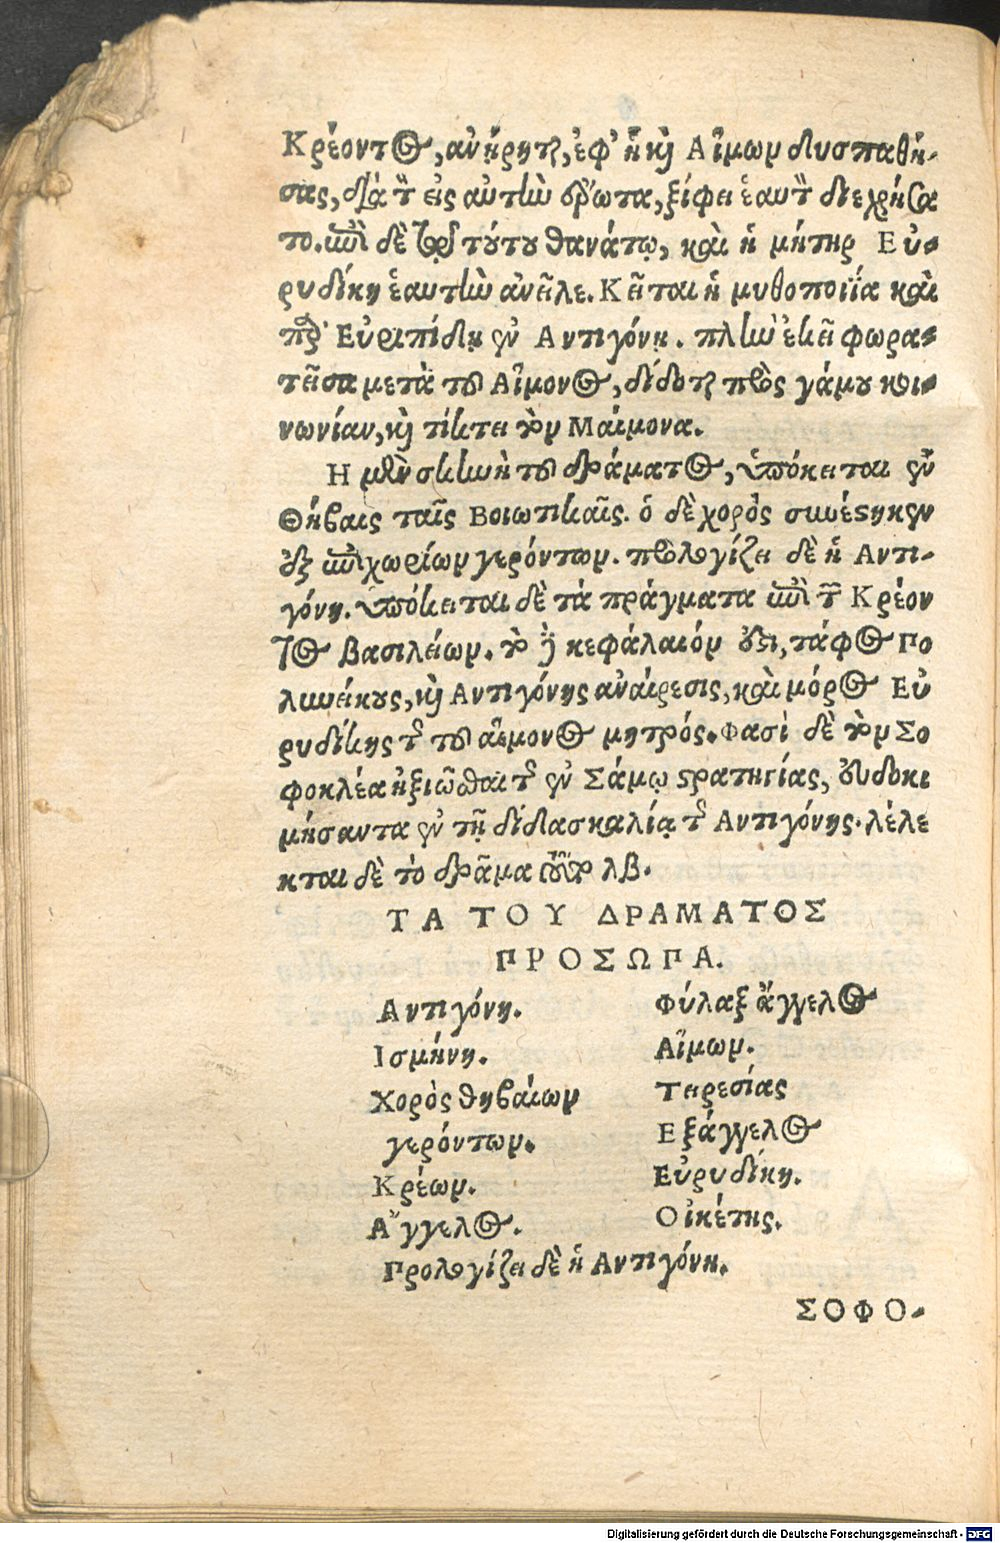 Κρέοντος, ἀνῄρηται, ἐφ' ᾗ καὶ Αἵμων δυσπαθή-
σας, διὰ τὸν εἰς αὐτὴν ἔρωτα, ξίφει ἑαυτὸν διεχρήσα
το. ἐπὶ δὲ τῷ τούτου θανάτῳ, καὶ ἡ μήτηρ Εὐ-
ρυδίκη ἑαυτὴν ἀνεῖλε. Κεῖται ἡ μυθοποιΐα καὶ
παρ' Εὐριπίδῃ ἐν Αντιγόνῃ. πλὴν ἐκεῖ φωρα-
τεῖσα μετὰ τοῦ Αἵμονος, δίδοται πρὸς γάμου κοι-
νωνίαν, καὶ τίκτει τὸν Μαίμονα.
Η μὲν σκηνὴ τοῦ δράματος, ὑπόκειται ἐν
Θήβαις ταῖς Βοιωτικαῖς. ὁ δὲ χορὸς συνέστηκεν
ἐξ ἐπιχωρίων γερόντων. προλογίζει δὲ ἡ Αντι-
γόνη. ὑπόκειται δὲ τὰ πράγματα ἐπὶ τῶν Κρέον
τος βασιλείων. τὸ δὲ κεφάλαιόν ἐστι, τάφος Πο
λυνείκους, καὶ Αντιγόνης ἀναίρεσις, καὶ μόρος Εὐ
ρυδίκης τῆς τοῦ αἵμονος μητρός. Φασὶ δὲ τὸν Σο
φοκλέα ἠξιῶσθαι τῆς ἐν Σάμῳ στρατηγίας, εὐδοκι
μήσαντα ἐν τῇ διδασκαλίᾳ τῆς Αντιγόνης. λέλε
κται δὲ τὸ δρᾶμα τοῦτο λβ.
ΤΑ ΤΟΥ ΔΡΑΜΑΤΟΣ
ΠΡΟΣΩΠΑ.
Αντιγόνη.
Ισμήνη.
Χορὸς θηβαίων
γερόντων.
Κρέων.
Αʹγγελος.
Φύλαξ ἄγγελος
Αἵμων.
Τειρεσίας
Εξάγγελος
Εὐρυδίκη.
Οἰκέτης.
Προλογίζει δὲ ἡ Αντιγόνη.
ΣΟΦΟ-
Digitalisierung gefördert durch die Deutsche Forschungsgemeinschaft - DFG